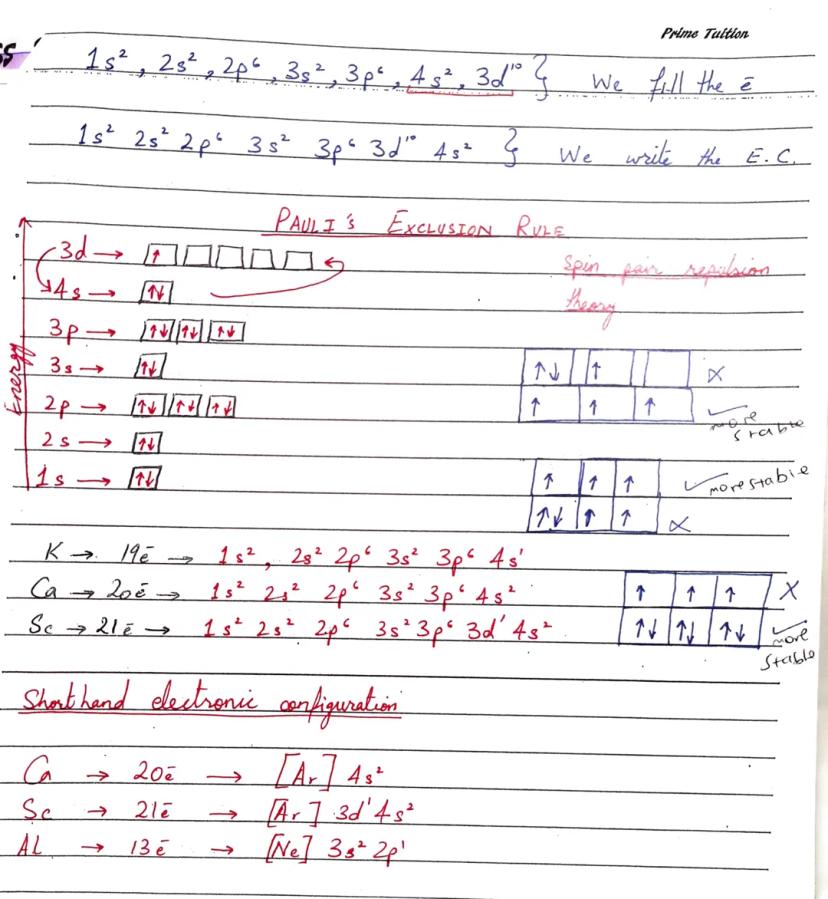 Prime Tuition
SS
1s², 2s², 2p⁶, 3s², 3p⁶, 4s², 3d¹⁰ } We fill the ē
1s² 2s² 2p⁶ 3s² 3p⁶ 3d¹⁰ 4s² } We write the E.C.
PAULI'S EXCLUSION RULE
Spin pair repulsion
theory
Energy
3d → ↑
4s → ↑↓
3p → ↑↓ ↑↓ ↑↓
3s → ↑↓
2p → ↑↓ ↑↓ ↑↓
2s → ↑↓
1s → ↑↓
↑↓ ↑ ×
↑ ↑ ↑ ✓ more
stable
↑ ↑ ↑ ✓ more stable
↑↓ ↑ ↑ ×
K → 19ē → 1s², 2s² 2p⁶ 3s² 3p⁶ 4s¹
Ca → 20ē → 1s² 2s² 2p⁶ 3s² 3p⁶ 4s²
Sc → 21ē → 1s² 2s² 2p⁶ 3s² 3p⁶ 3d¹ 4s²
↑ ↑ ↑ ×
↑↓ ↑↓ ↑↓ ✓ more
stable
Shorthand electronic configuration
Ca → 20ē → [Ar] 4s²
Sc → 21ē → [Ar] 3d¹ 4s²
AL → 13ē → [Ne] 3s² 2p¹